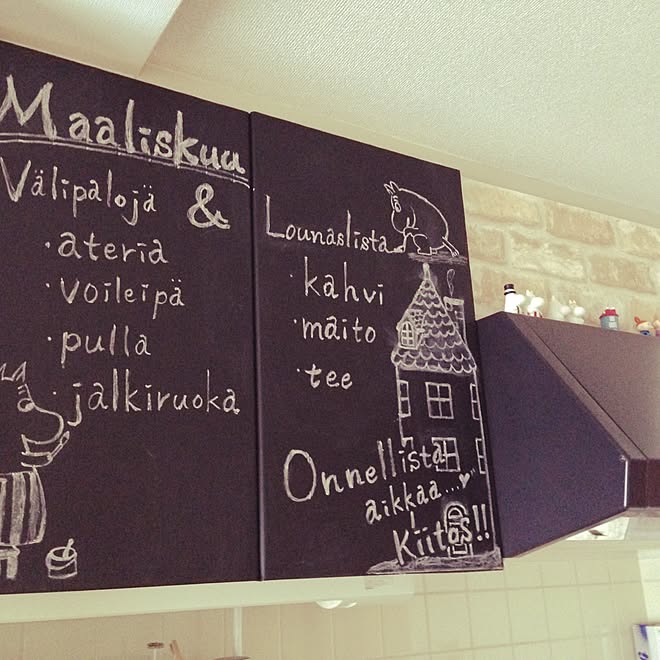 Maaliskuu
Välipalojä &
·ateria
·voileipä
·pulla
·jälkiruoka
Lounaslista
·kahvi
·maito
·tee
Onnellista
aikkaa...♥
Kiitos!!